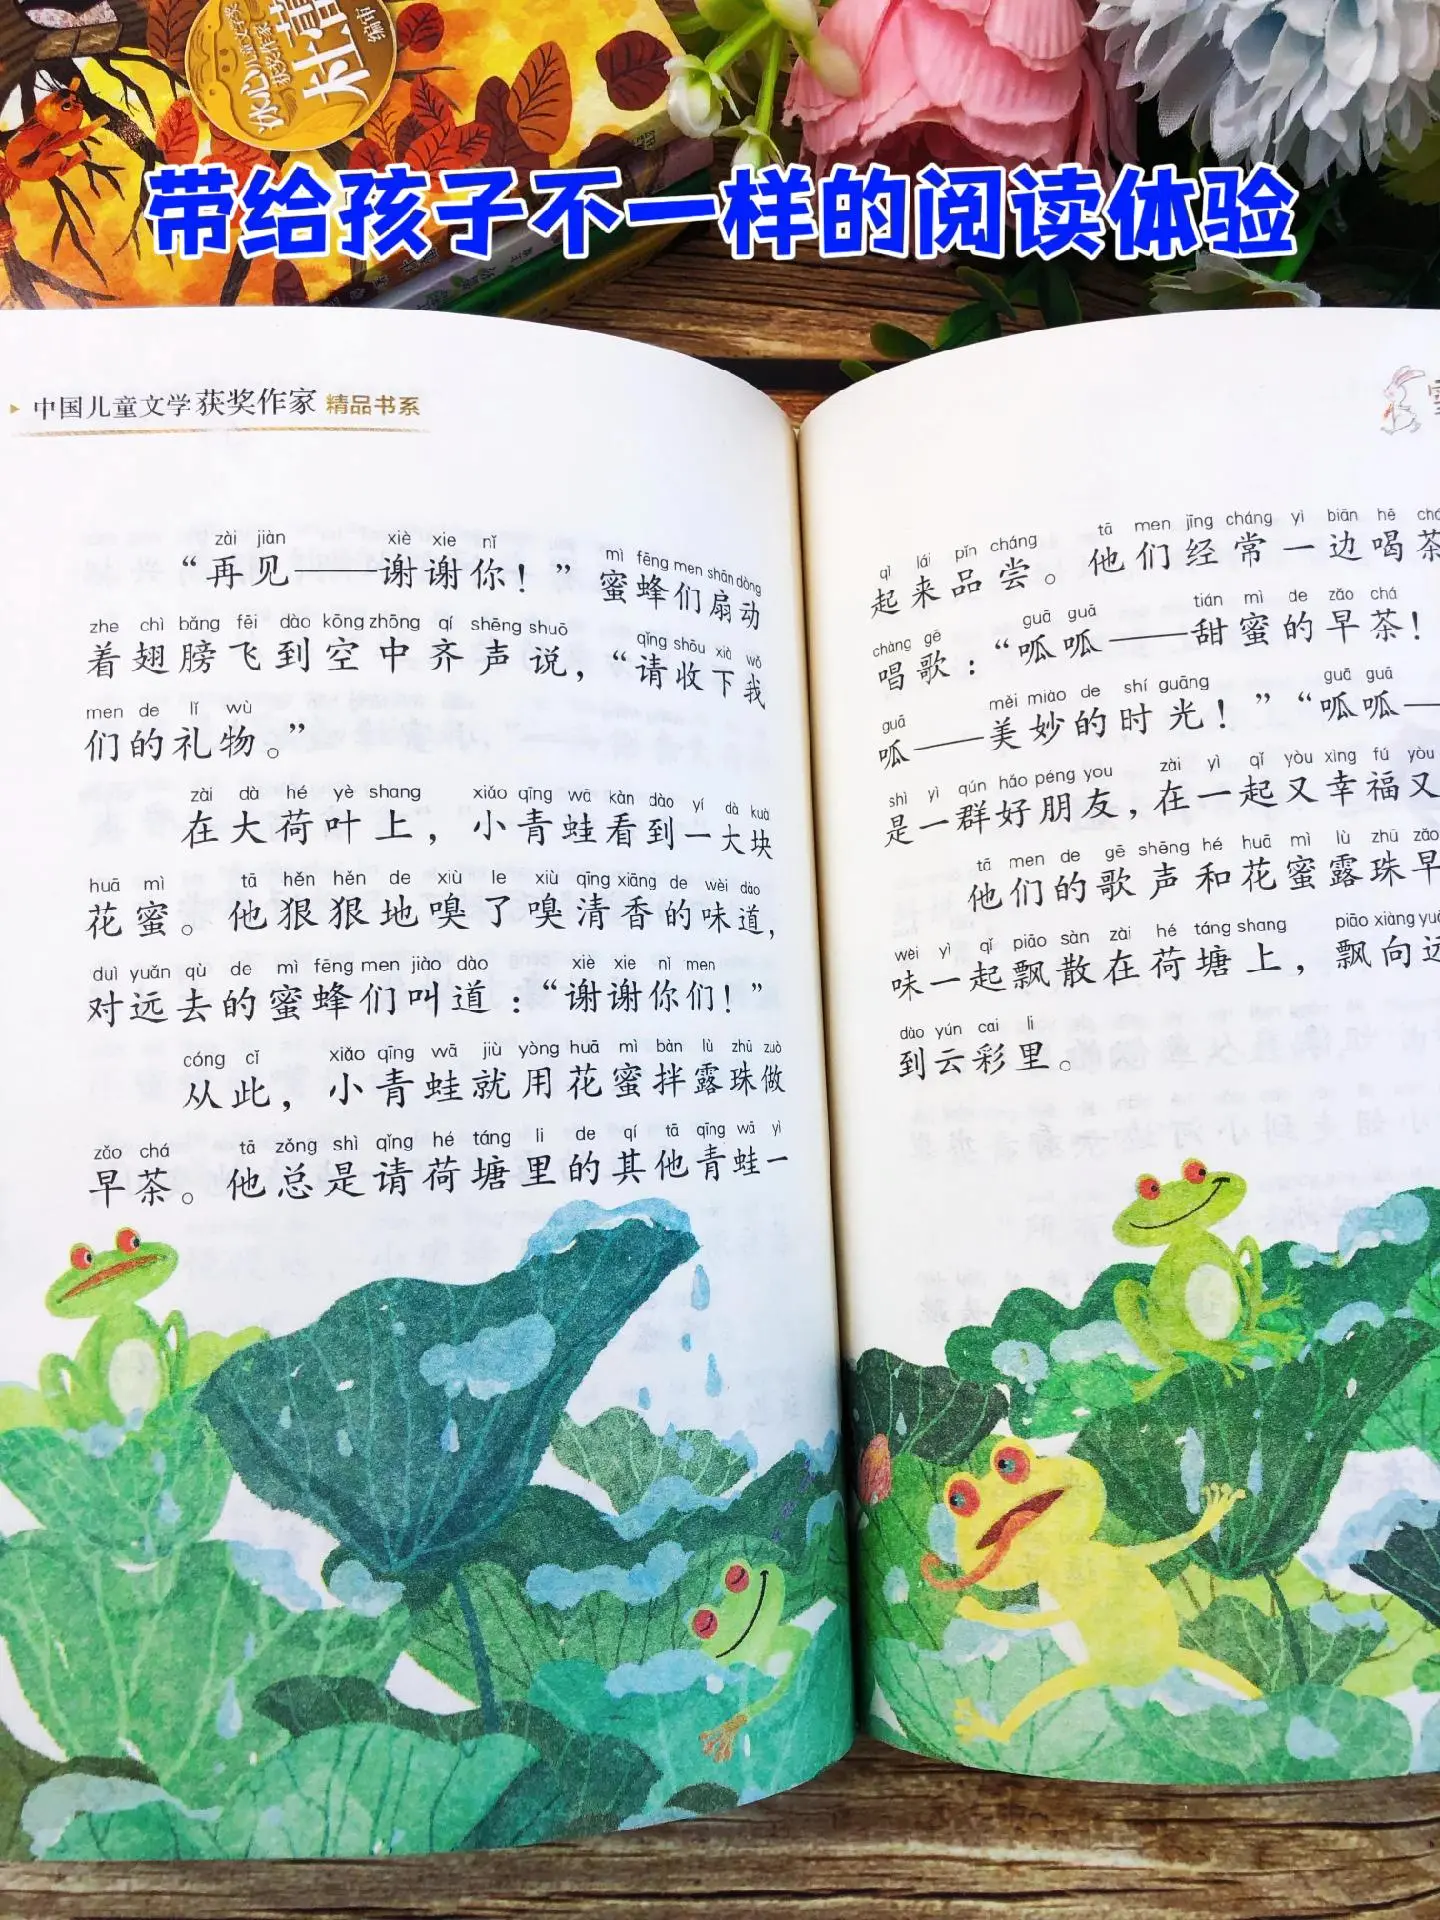 冰心儿童文学奖
获奖作家
杜蕾
编审
带给孩子不一样的阅读体验
中国儿童文学获奖作家 精品书系
zài jiàn xiè xie nǐ mì fēng men shān dòng
“再见——谢谢你！”蜜蜂们扇动
zhe chì bǎng fēi dào kōng zhōng qí shēng shuō qǐng shōu xià wǒ
着翅膀飞到空中齐声说，“请收下我
men de lǐ wù
们的礼物。”
zài dà hé yè shang xiǎo qīng wā kàn dào yí dà kuài
在大荷叶上，小青蛙看到一大块
huā mì tā hěn hěn de xiù le xiù qīng xiāng de wèi dào
花蜜。他狠狠地嗅了嗅清香的味道，
duì yuǎn qù de mì fēng men jiào dào xiè xie nǐ men
对远去的蜜蜂们叫道：“谢谢你们！”
cóng cǐ xiǎo qīng wā jiù yòng huā mì bàn lù zhū zuò
从此，小青蛙就用花蜜拌露珠做
zǎo chá tā zǒng shì qǐng hé táng li de qí tā qīng wā yì
早茶。他总是请荷塘里的其他青蛙一
qǐ lái pǐn cháng tā men jīng cháng yì biān hē chá
起来品尝。他们经常一边喝茶
chàng gē guā guā tián mì de zǎo chá
唱歌：“呱呱——甜蜜的早茶！
guā měi miào de shí guāng guā guā
呱——美妙的时光！”“呱呱—
shì yì qún hǎo péng you zài yì qǐ yòu xìng fú yòu
是一群好朋友，在一起又幸福又
tā men de gē shēng hé huā mì lù zhū zǎo
他们的歌声和花蜜露珠早
wèi yì qǐ piāo sàn zài hé táng shang piāo xiàng yuǎn
味一起飘散在荷塘上，飘向远
dào yún cai li
到云彩里。